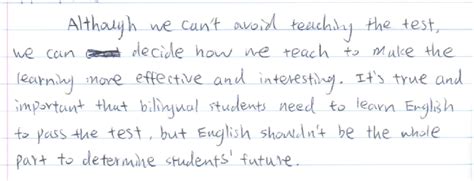 Although we can't avoid teaching the test,
we can decide how we teach to make the
learning more effective and interesting. It's true and
important that bilingual students need to learn English
to pass the test, but English shouldn't be the whole
part to determine students' future.